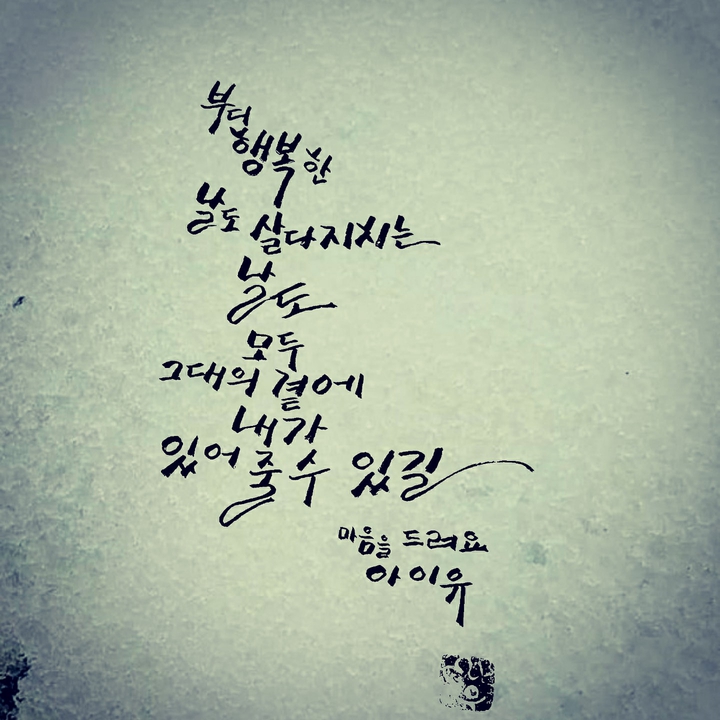 부디
행복한
날도 살다 지치는
날도
모두
그대의 곁에
내가
있어 줄 수 있길
마음을 드려요
아이유